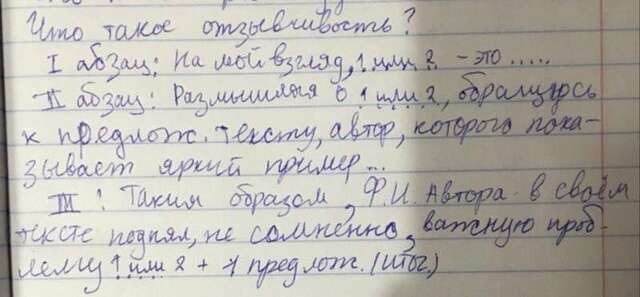 Что такое отзывчивость?
I абзац: На мой взгляд, 1 или 2 - это .....
II абзац: Размышляя о 1 или 2, обращусь
к предлож. тексту, автор, которого пока-
зывает яркий пример...
III : Таким образом, Ф.И. Автора в своём
тексте поднял, не сомненно, важную проб-
лему 1 или 2 + 1 предлож. (итог)